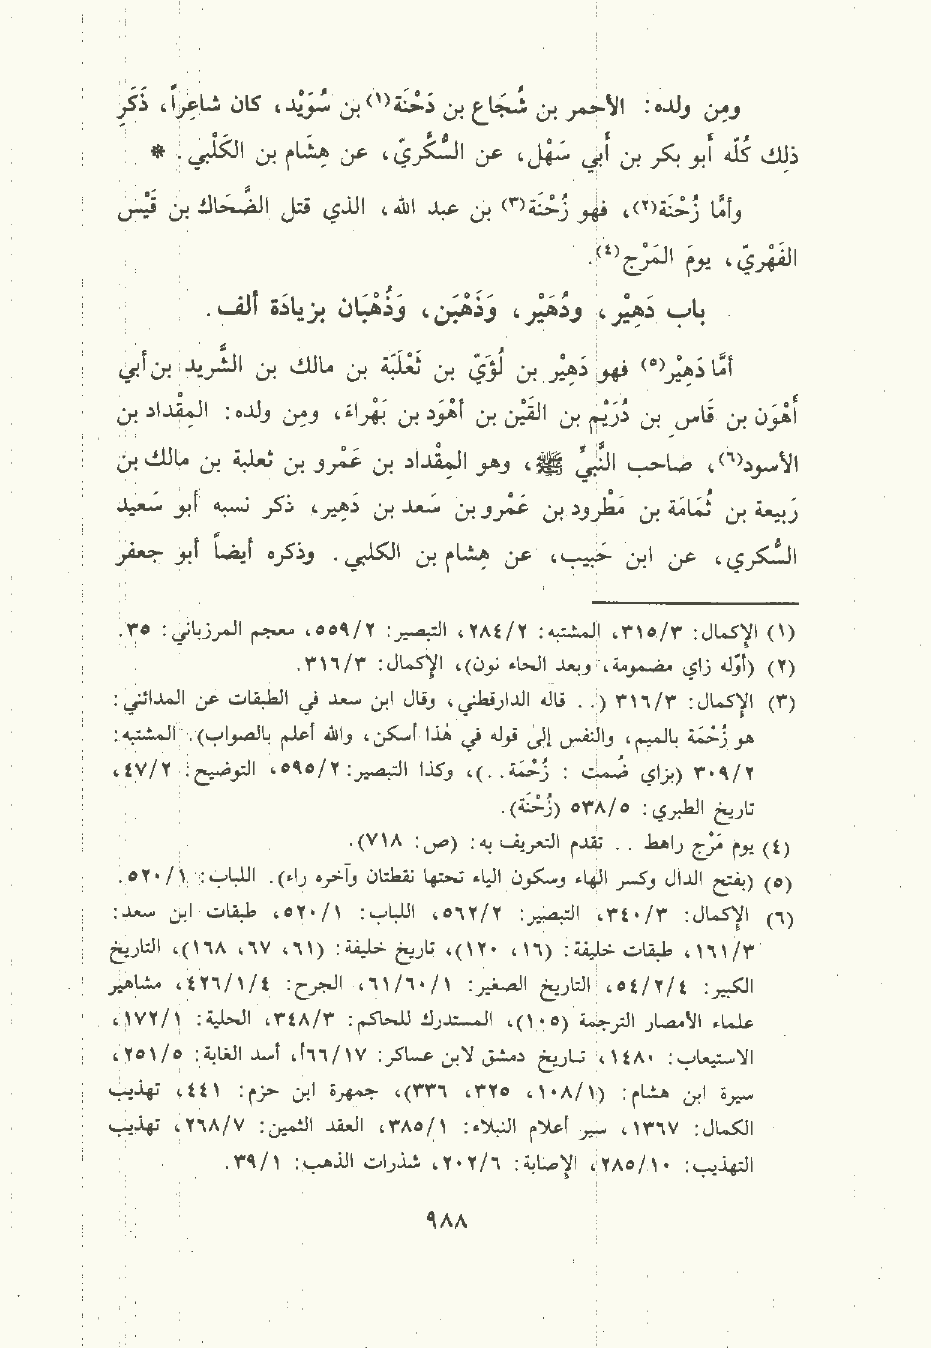 ومِن ولده: الأحمر بن شُجَاع بن دَحْنَة(١) بن سُوَيْد، كان شاعِراً، ذَكَرَ
ذلِك كُلّه أَبو بكر بن أَبي سَهْل، عن السُّكَّريّ، عن هِشَام بن الكَلْبي. *
وأمَّا زُحْنَة(٢)، فهو زُحْنَة(٣) بن عبد الله، الذي قتل الضَّحَاك بن قَيْس
الفَهْريّ، يومَ المَرْج(٤).
باب دَهِيْر، ودُهَيْر، وَذَهْبَن، وَذُهْبَان بزيادَة ألف.
أمَّا دَهِيْر(٥) فهو دَهِيْر بن لُؤَيّ بن ثَعْلَبَة بن مالك بن الشَّريد بن أبي
أَهْوَن بن قَاس بن دُرَيْم بن القَيْن بن أهْوَد بن بَهْرَاء، ومن ولده: المِقْداد بن
الأسود(٦)، صاحب النَّبيِّ ﷺ، وهو المِقْداد بن عَمْرو بن ثعلبة بن مالك بن
رَبيعة بن ثُمَامَة بن مَطْرود بن عَمْرو بن سَعد بن دَهِير، ذكر نسبه أبو سَعيد
السُّكري، عن ابن حَبيب، عن هِشام بن الكلبي. وذكره أيضاً أبو جعفر
(١) الإكمال: ٣١٥/٣، المشتبه: ٢٨٤/٢، التبصير: ٥٥٩/٢، معجم المرزباني: ٣٥.
(٢) (أوّله زاي مضمومة، وبعد الحاء نون)، الإكمال: ٣١٦/٣.
(٣) الإكمال: ٣١٦/٣ (.. قاله الدارقطني، وقال ابن سعد في الطبقات عن المدائني:
هو زُحْمَة بالميم، والنفس إلى قوله في هٰذا أسكن، والله أعلم بالصواب). المشتبه:
٣٠٩/٢ (بزاي ضُمت : زُحْمَة..)، وكذا التبصير: ٥٩٥/٢، التوضيح: ٤٧/٢،
تاريخ الطبري: ٥٣٨/٥ (زُحْنَة).
(٤) يوم مَرْج راهط .. تقدم التعريف به: (ص: ٧١٨).
(٥) (بفتح الدال وكسر الهاء وسكون الياء تحتها نقطتان وآخره راء). اللباب: ٥٢٠/١.
(٦) الإكمال: ٣٤٠/٣، التبصير: ٥٦٢/٢، اللباب: ٥٢٠/١، طبقات ابن سعد:
١٦١/٣، طبقات خليفة: (١٦، ١٢٠)، تاريخ خليفة: (٦١، ٦٧، ١٦٨)، التاريخ
الكبير: ٥٤/٢/٤، التاريخ الصغير: ٦١/٦٠/١، الجرح: ٤٢٦/١/٤، مشاهير
علماء الأمصار الترجمة (١٠٥)، المستدرك للحاكم: ٣٤٨/٣، الحلية: ١٧٢/١،
الاستيعاب: ١٤٨٠، تاريخ دمشق لابن عساكر: ٦٦/١٧أ، أسد الغابة: ٢٥١/٥،
سيرة ابن هشام: (١٠٨/١، ٣٢٥، ٣٣٦)، جمهرة ابن حزم: ٤٤١، تهذيب
الكمال: ١٣٦٧، سير أعلام النبلاء: ٣٨٥/١، العقد الثمين: ٢٦٨/٧، تهذيب
التهذيب: ٢٨٥/١٠، الإصابة: ٢٠٢/٦، شذرات الذهب: ٣٩/١.
٩٨٨